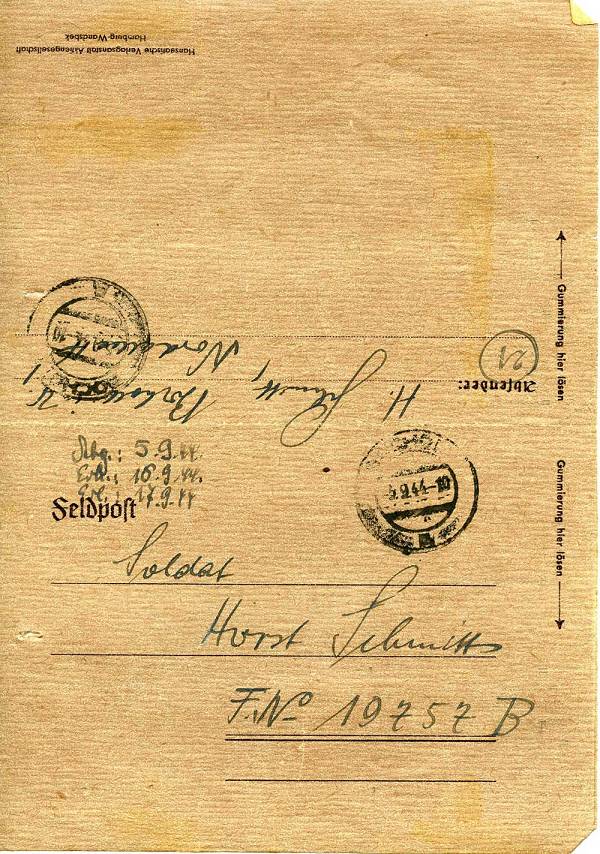 Hanseatische Verlagsanstalt Aktiengesellschaft
Hamburg-Wandsbek
Absender:
21
H. Schmitt,
Gummierung hier lösen
Gummierung hier lösen
5.9.44
16.9.44.
17.9.44
5.9.44-10
Feldpost
Soldat
Horst Schmitt
F.No 19757 B